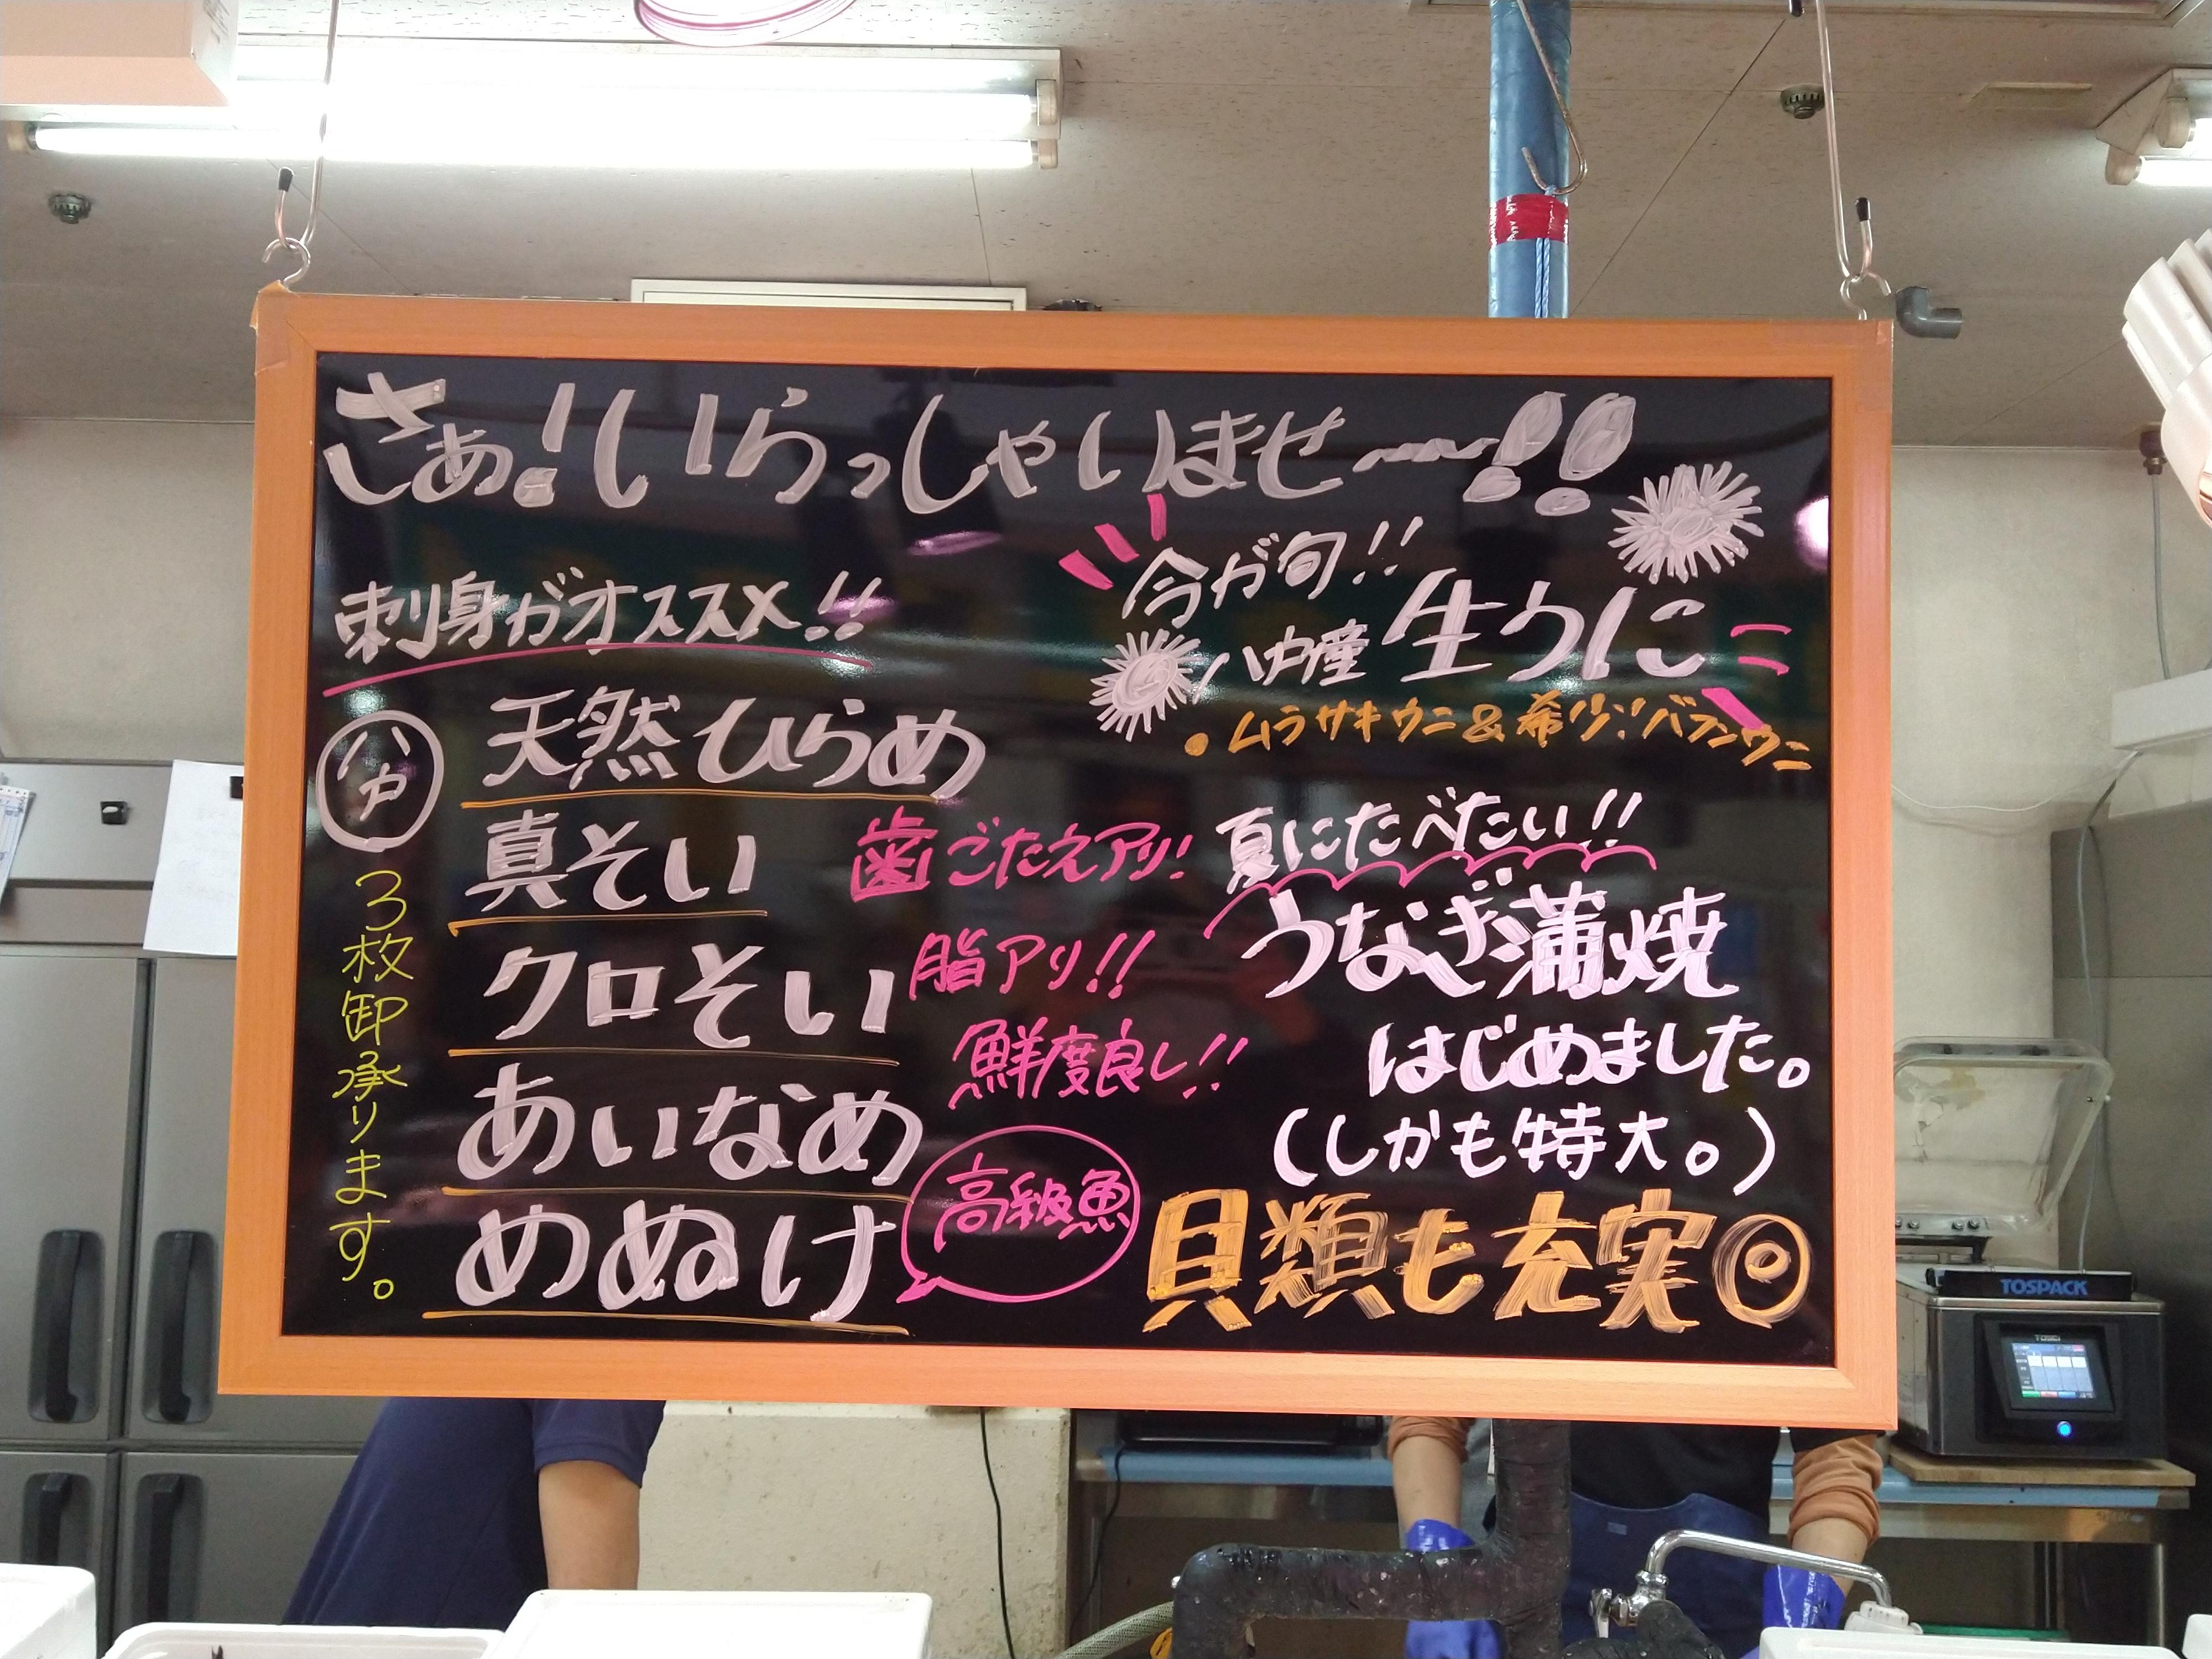 さぁ!いらっしゃいませ〜!!
刺身がオススメ!!
天然ひらめ
真そい
歯ごたえアリ!
クロそい
脂アリ!!
あいなめ
鮮度良し!!
めぬけ
高級魚
3枚卸承ります。
今が旬!!
八戸産 生うに
・ムラサキウニ&希少!バフンウニ
夏にたべたい!!
うなぎ蒲焼
はじめました。
(しかも特大。)
貝類も充実◎
TOSPACK
TOSEI